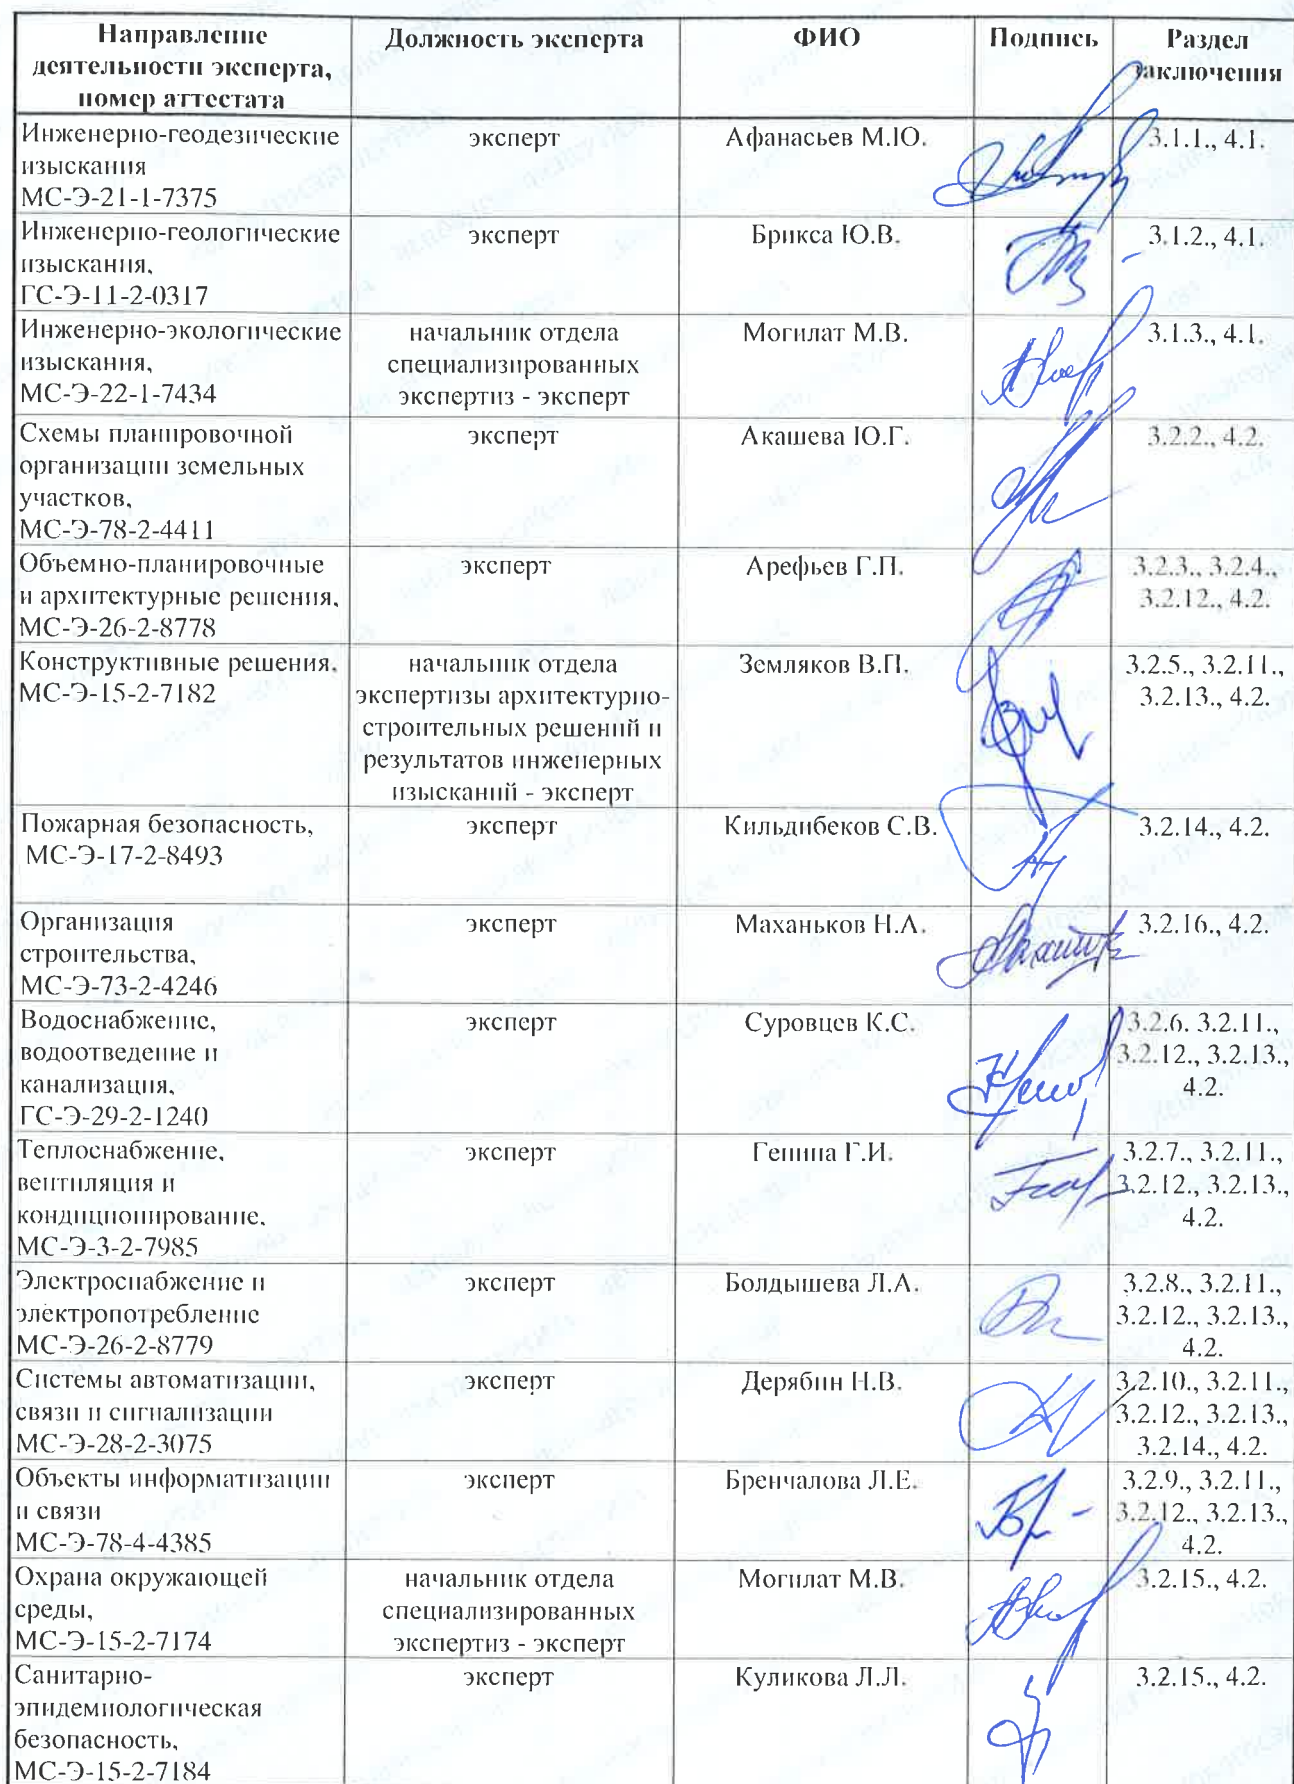 Направление деятельности эксперта, номер аттестата | Должность эксперта | ФИО | Подпись | Раздел заключения
Инженерно-геодезические изыскания МС-Э-21-1-7375 | эксперт | Афанасьев М.Ю. | 3.1.1., 4.1.
Инженерно-геологические изыскания, ГС-Э-11-2-0317 | эксперт | Брикса Ю.В. | 3.1.2., 4.1.
Инженерно-экологические изыскания, МС-Э-22-1-7434 | начальник отдела специализированных экспертиз - эксперт | Могилат М.В. | 3.1.3., 4.1.
Схемы планировочной организации земельных участков, МС-Э-78-2-4411 | эксперт | Акашева Ю.Г. | 3.2.2., 4.2.
Объемно-планировочные и архитектурные решения, МС-Э-26-2-8778 | эксперт | Арефьев Г.П. | 3.2.3., 3.2.4., 3.2.12., 4.2.
Конструктивные решения, МС-Э-15-2-7182 | начальник отдела экспертизы архитектурно-строительных решений и результатов инженерных изысканий - эксперт | Земляков В.П. | 3.2.5., 3.2.11., 3.2.13., 4.2.
Пожарная безопасность, МС-Э-17-2-8493 | эксперт | Кильдибеков С.В. | 3.2.14., 4.2.
Организация строительства, МС-Э-73-2-4246 | эксперт | Маханьков Н.А. | 3.2.16., 4.2.
Водоснабжение, водоотведение и канализация, ГС-Э-29-2-1240 | эксперт | Суровцев К.С. | 3.2.6. 3.2.11., 3.2.12., 3.2.13., 4.2.
Теплоснабжение, вентиляция и кондиционирование, МС-Э-3-2-7985 | эксперт | Генина Г.И. | 3.2.7., 3.2.11., 3.2.12., 3.2.13., 4.2.
Электроснабжение и электропотребление МС-Э-26-2-8779 | эксперт | Болдышева Л.А. | 3.2.8., 3.2.11., 3.2.12., 3.2.13., 4.2.
Системы автоматизации, связи и сигнализации МС-Э-28-2-3075 | эксперт | Дерябин Н.В. | 3.2.10., 3.2.11., 3.2.12., 3.2.13., 3.2.14., 4.2.
Объекты информатизации и связи МС-Э-78-4-4385 | эксперт | Бренчалова Л.Е. | 3.2.9., 3.2.11., 3.2.12., 3.2.13., 4.2.
Охрана окружающей среды, МС-Э-15-2-7174 | начальник отдела специализированных экспертиз - эксперт | Могилат М.В. | 3.2.15., 4.2.
Санитарно-эпидемиологическая безопасность, МС-Э-15-2-7184 | эксперт | Куликова Л.Л. | 3.2.15., 4.2.